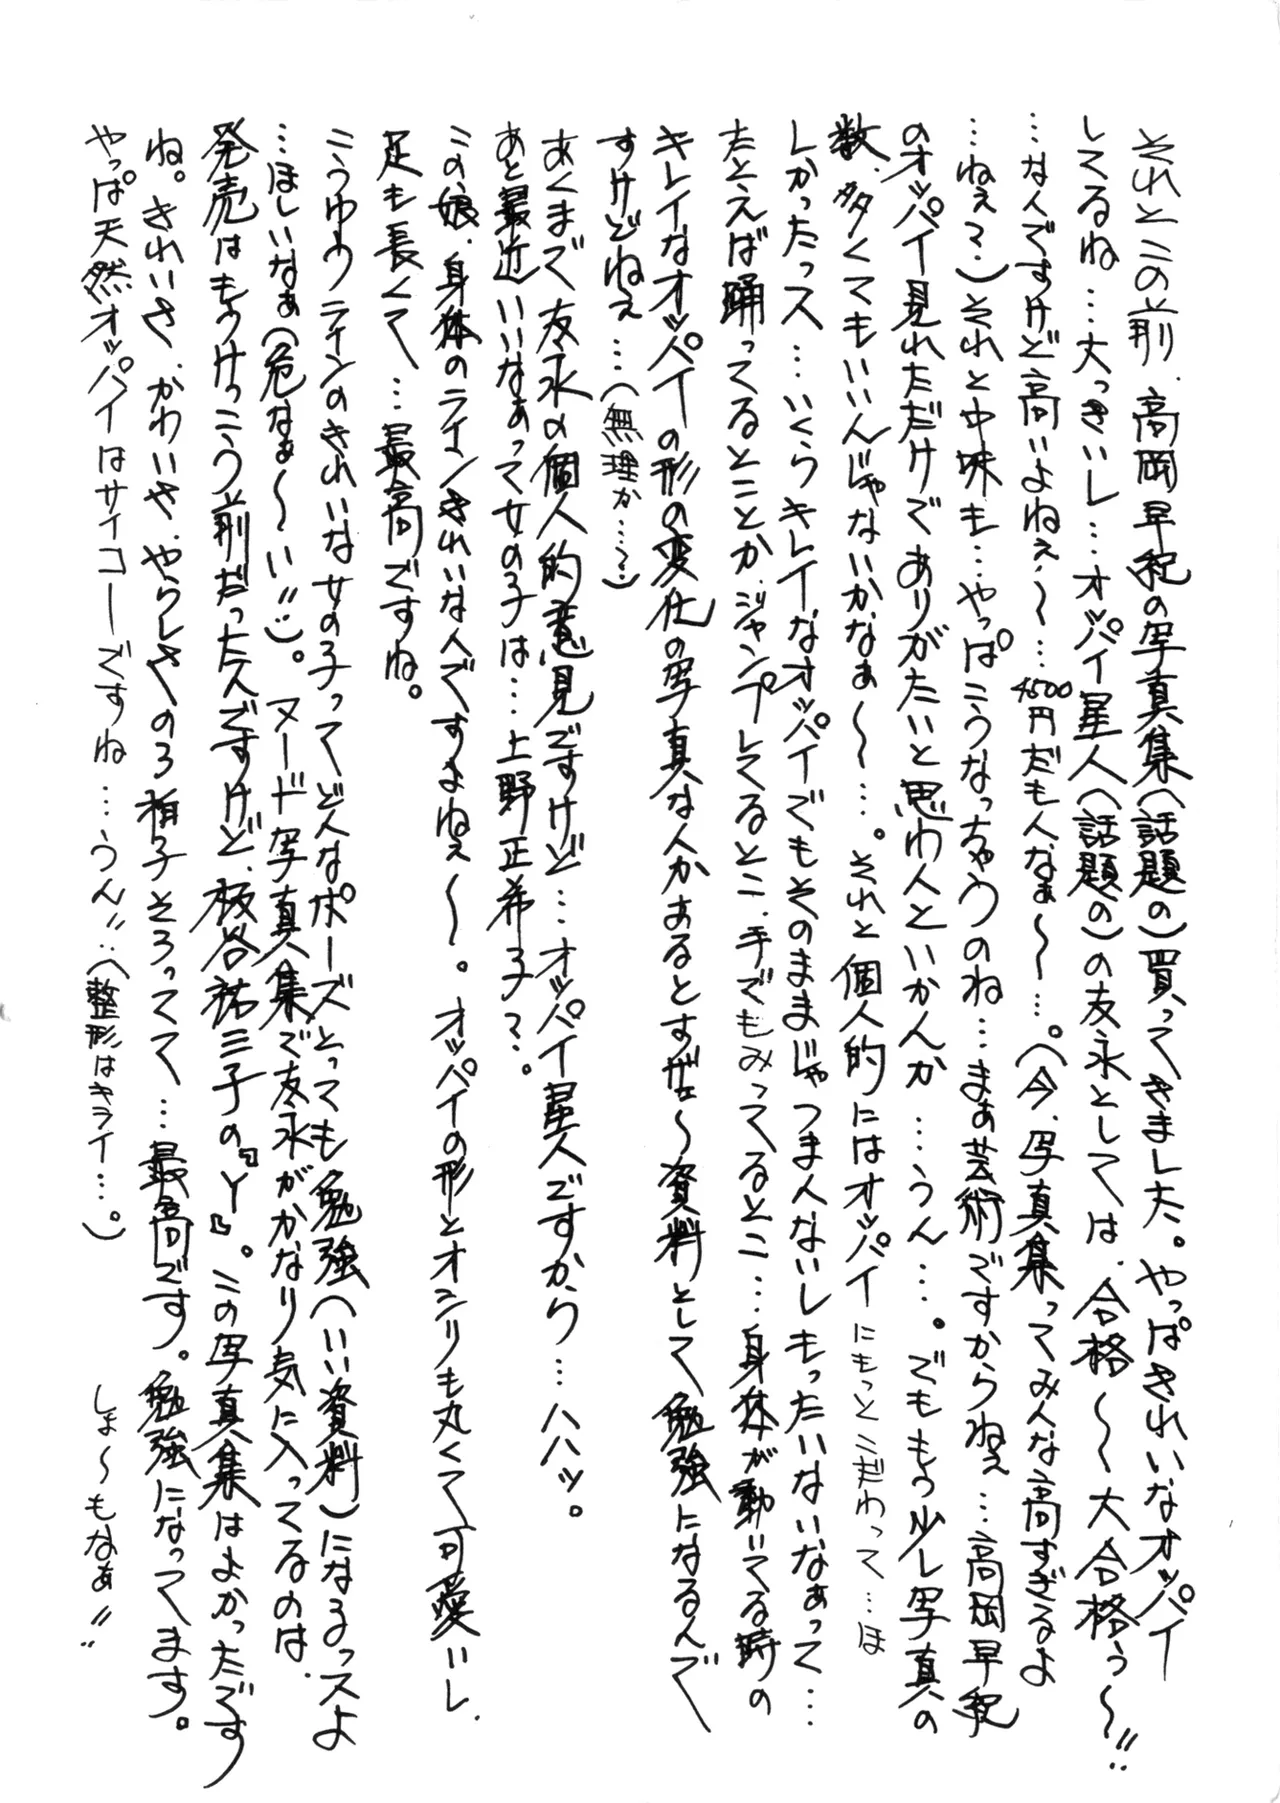 それとこの前、高岡早紀の写真集(話題の)買ってきました。やっぱきれいなオッパイ
してるね…大っきいし…オッパイ星人(話題の)の友永としては、合格〜〜大合格ぅ〜!!
…なんですけど高いよねぇ〜…4500円だもんなぁ〜…。(今、写真集ってみんな高すぎるよ
…ねぇ?)それと中味も…やっぱこうなっちゃうのね…まぁ芸術ですからねぇ…高岡早紀
のオッパイ見れただけでありがたいと思わんといかんか…うん…。でももう少し写真の
数、多くてもいいんじゃないかなぁ〜…。それと個人的にはオッパイにもっとこだわって…ほ
しかったっス…いくらキレイなオッパイでもそのままじゃつまんないしもったいないなぁって…
たとえば踊ってるとことか、ジャンプしてるとこ、手でもみってるとこ…身体が動いてる時の
キレイなオッパイの形の変化の写真なんかあるとすげェ〜資料として勉強になるんで
すけどねぇ…(無理か…?)
あくまで友永の個人的意見ですけど…オッパイ星人ですから…ハハッ。
あと最近いいなぁって女の子は…上野正希子?。
この娘、身体のラインきれいな人ですよねぇ〜。オッパイの形とオシリも丸くて可愛いし、
足も長くて…最高ですね。
こうゆうラインのきれいな女の子ってどんなポーズとっても勉強(いい資料)になるっスよ
…ほしいなぁ(危なぁ〜い!!)。ヌード写真集で友永がかなり気に入ってるのは、
発売はもうけっこう前だったんですけど、板谷祐三子の『Y』。この写真集はよかったです
ね。きれいさ、かわいさ、やらしさの3拍子そろってて…最高です。勉強になってます。
やっぱ天然オッパイはサイコーですね…うん!!…(整形はキライ…。) しょ〜もなぁ!!